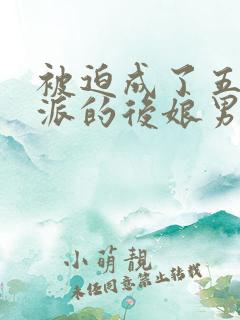 被迫成了五
派的後娘男
小萌靚
未经同意禁止转载